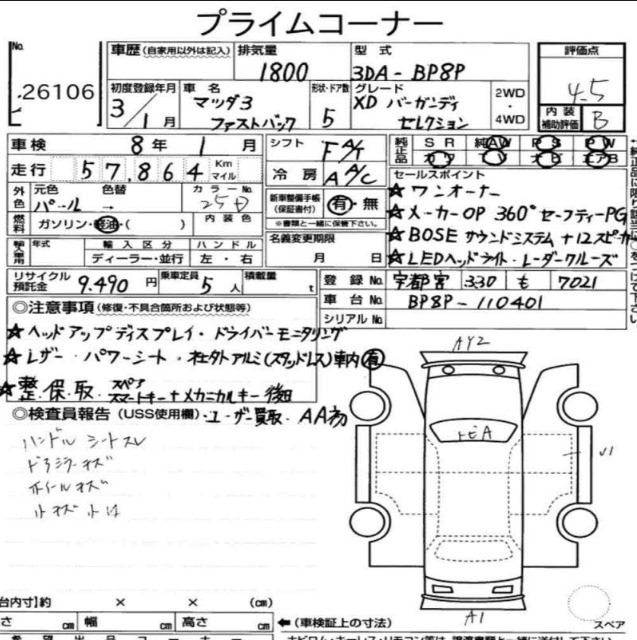 プライムコーナー
No.
26106
車歴 (自家用以外は記入) 排気量 1800 型式 3DA-BP8P
評価点 4.5
内装補助評価 B
初度登録年月 3年 1月 車名 マツダ3 ファストバック 形状・ドア数 5 グレード XD バーガンディ セレクション 2WD・4WD
車検 8年 1月 シフト FA/T 純正品 SR 純AW PS PW
走行 57,864 Km マイル 冷房 A/C エアB
外色 元色 パール 色替 → カラーNo. 25D
燃料 ガソリン・軽油・( ) 内装色
新車整備手帳(保証書付) 有・無
※書類と一緒に保管下さい。
セールスポイント
★ワンオーナー
★メーカーOP 360°セーフティーPG
★BOSEサウンドシステム+12スピーカ
★LEDヘッドライト・レーダークルーズ
輸入車用 年式 輸入区分 ディーラー・並行 ハンドル 左・右
名義変更期限 月 日
リサイクル預託金 9.490円 乗車定員 5人 積載量 t
登録No. 宇都宮 330 も 7021
車台No. BP8P-110401
シリアルNo.
◎注意事項 (修復・不具合箇所および状態等)
★ヘッドアップディスプレイ・ドライバーモニタリング
★レザー・パワーシート・社外アルミ(スタッドレス)車内有
★整・保・取 スペア スマートキー+メカニカルキー後日
◎検査員報告 (USS使用欄)・ユーザー買取・AA初
ハンドル シートスレ
ドアミラーキズ
ホイールキズ
小キズ 小凹
AY2
U1
A1
スペア
(荷台内寸)約 × × (cm)
長さ cm 幅 cm 高さ cm ←(車検証上の寸法)